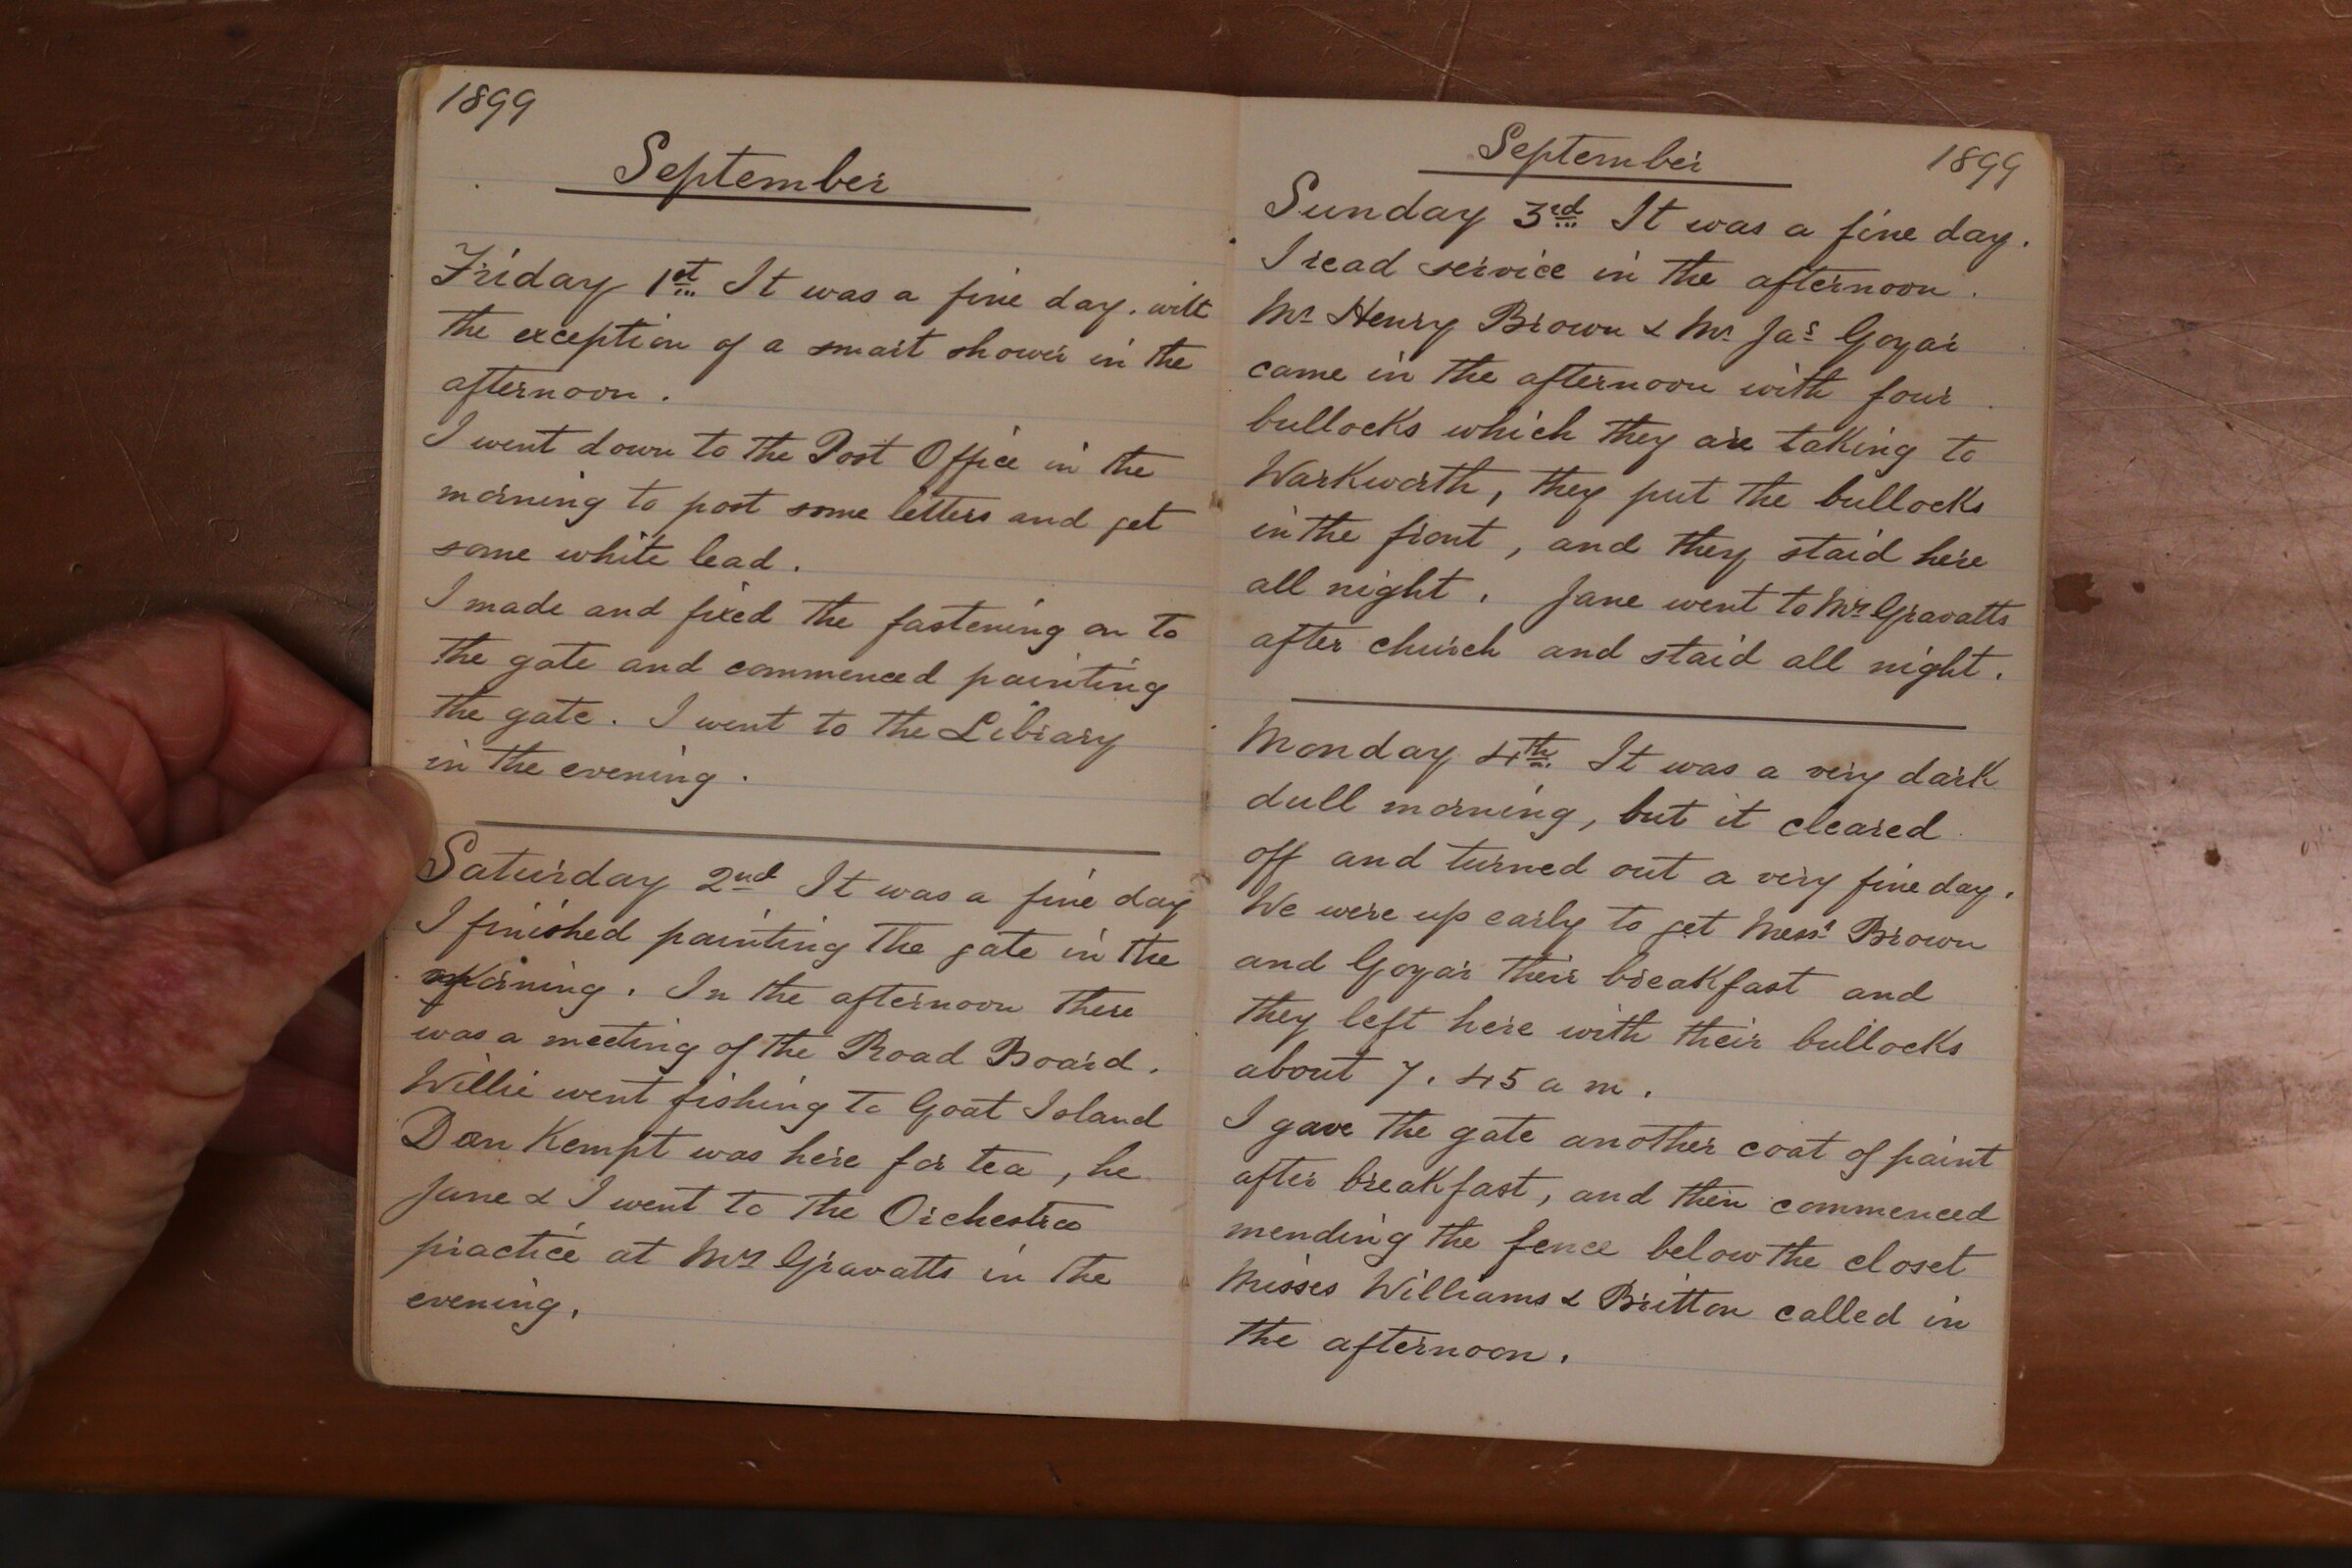 1899
September
Friday 1st It was a fine day. with
the exception of a smart shower in the
afternoon.
I went down to the Post Office in the
morning to post some letters and get
some white lead.
I made and fixed the fastening on to
the gate and commenced painting
the gate. I went to the Library
in the evening.
Saturday 2nd It was a fine day
I finished painting the gate in the
morning. In the afternoon there
was a meeting of the Road Board.
Willie went fishing to Goat Island
Dan Kempt was here for tea, he
Jane & I went to the Orchestra
practice at Mrs Gravatts in the
evening.
September 1899
Sunday 3rd It was a fine day.
I read service in the afternoon.
Mr Henry Brown & Mr Jas Goyar
came in the afternoon with four
bullocks which they are taking to
Warkworth, they put the bullocks
in the front, and they staid here
all night. Jane went to Mrs Gravatts
after church and staid all night.
Monday 4th It was a very dark
dull morning, but it cleared
off and turned out a very fine day.
We were up early to get Messrs Brown
and Goyar their breakfast and
they left here with their bullocks
about 7.45 a m.
I gave the gate another coat of paint
after breakfast, and then commenced
mending the fence below the closet
Misses Williams & Britton called in
the afternoon.